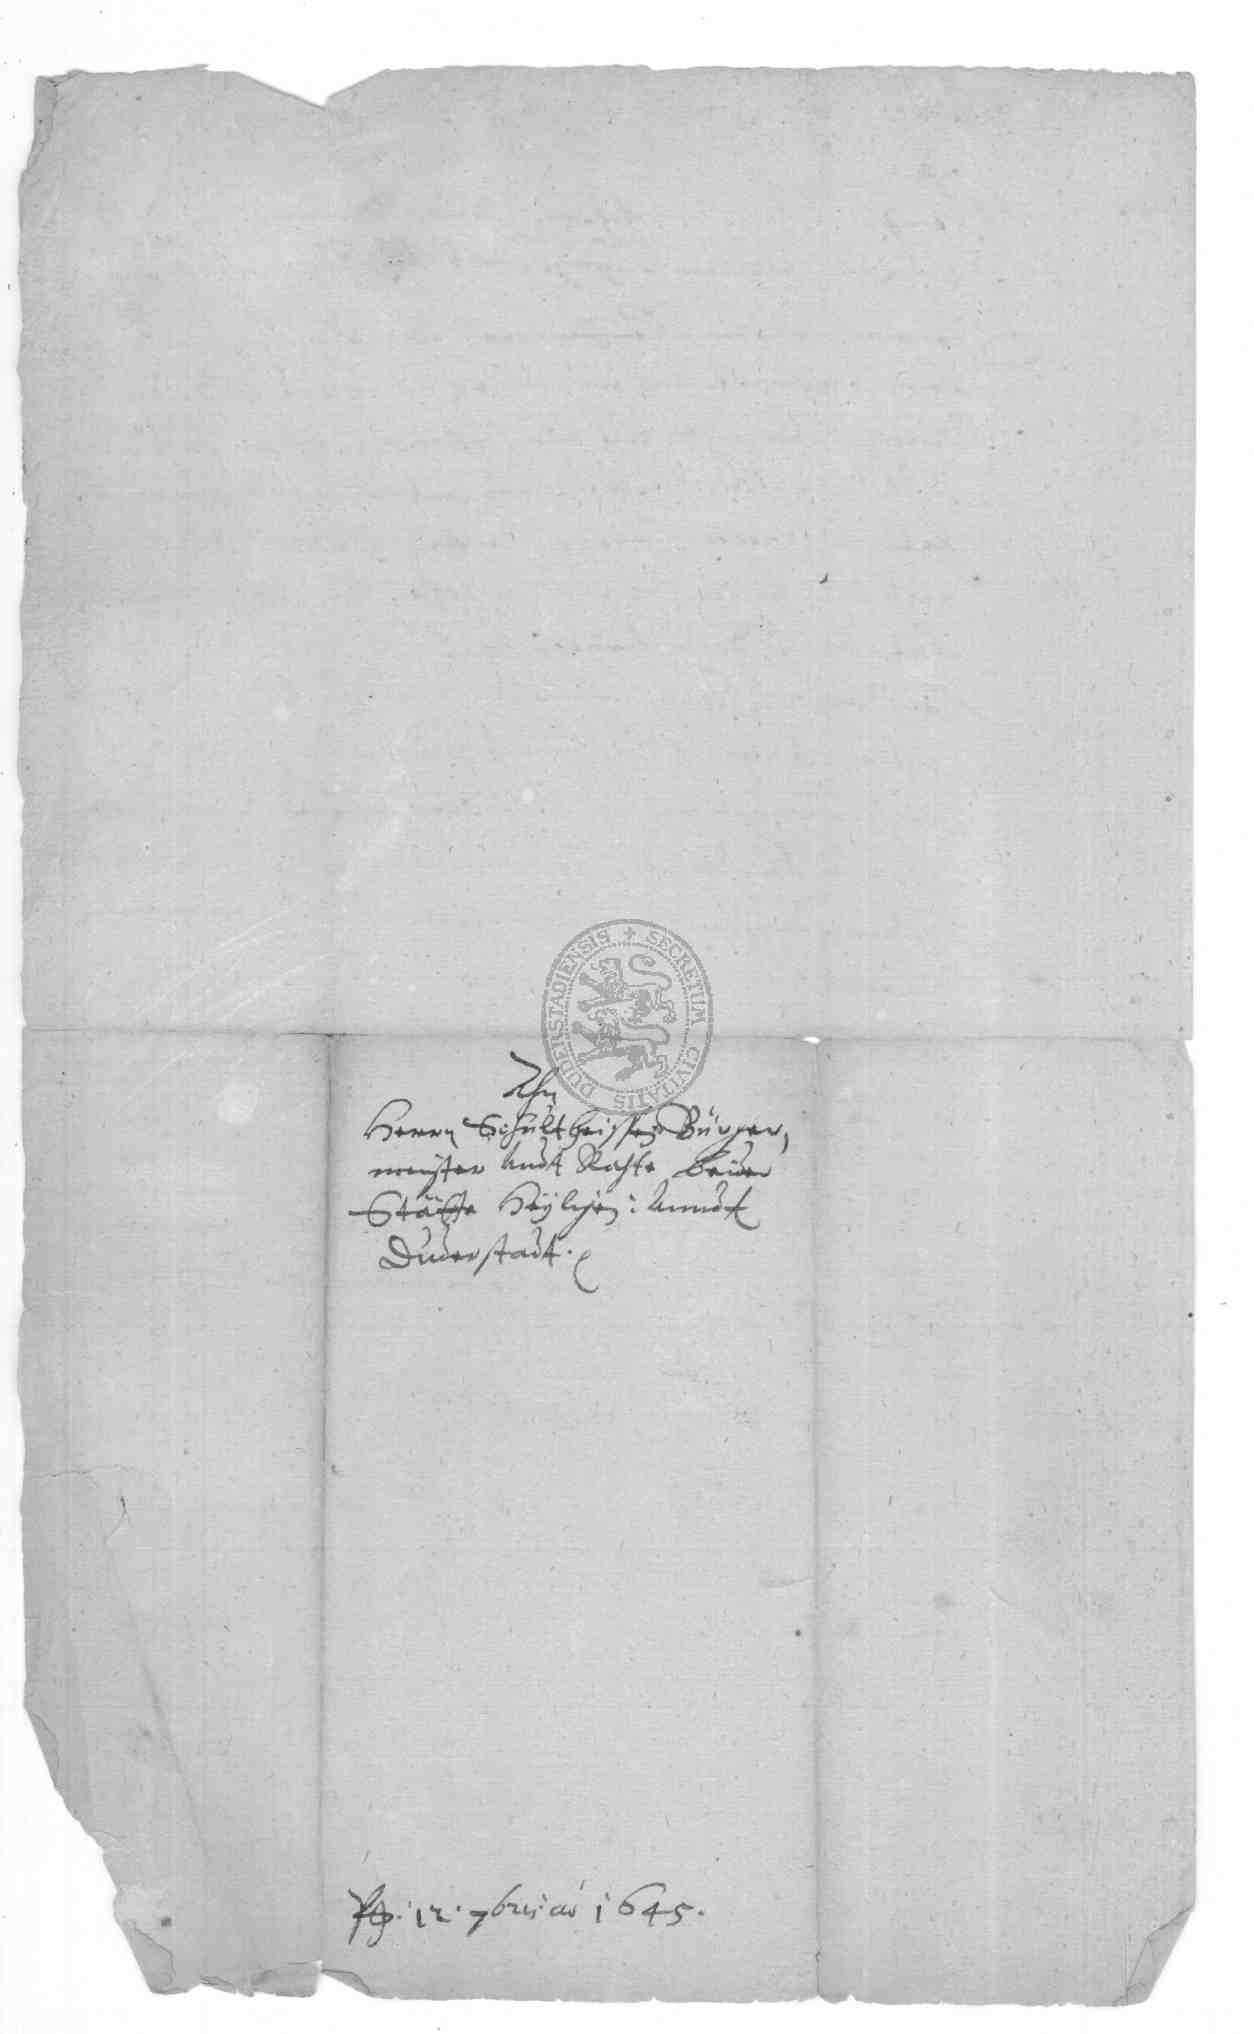 SECRETUM CIVITATIS DUDERSTADIENSIS
Ahn
Herrn Schultheissen Bürger,
meister undt Rahte beider
Städte Heyligen: unndt
Duderstadt.
12. 7bris ao 1645.